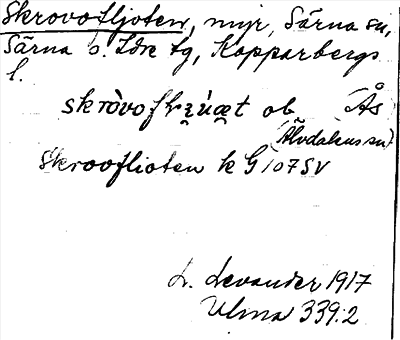 Skrovofljoten, myr, Särna sn,
Särna o. Idre tg, Kopparbergs
l.
ob. (Ås
(Älvdalens sn)
Skroofljoten k G 107 SV
L. Levander 1917
Ulma 339:2